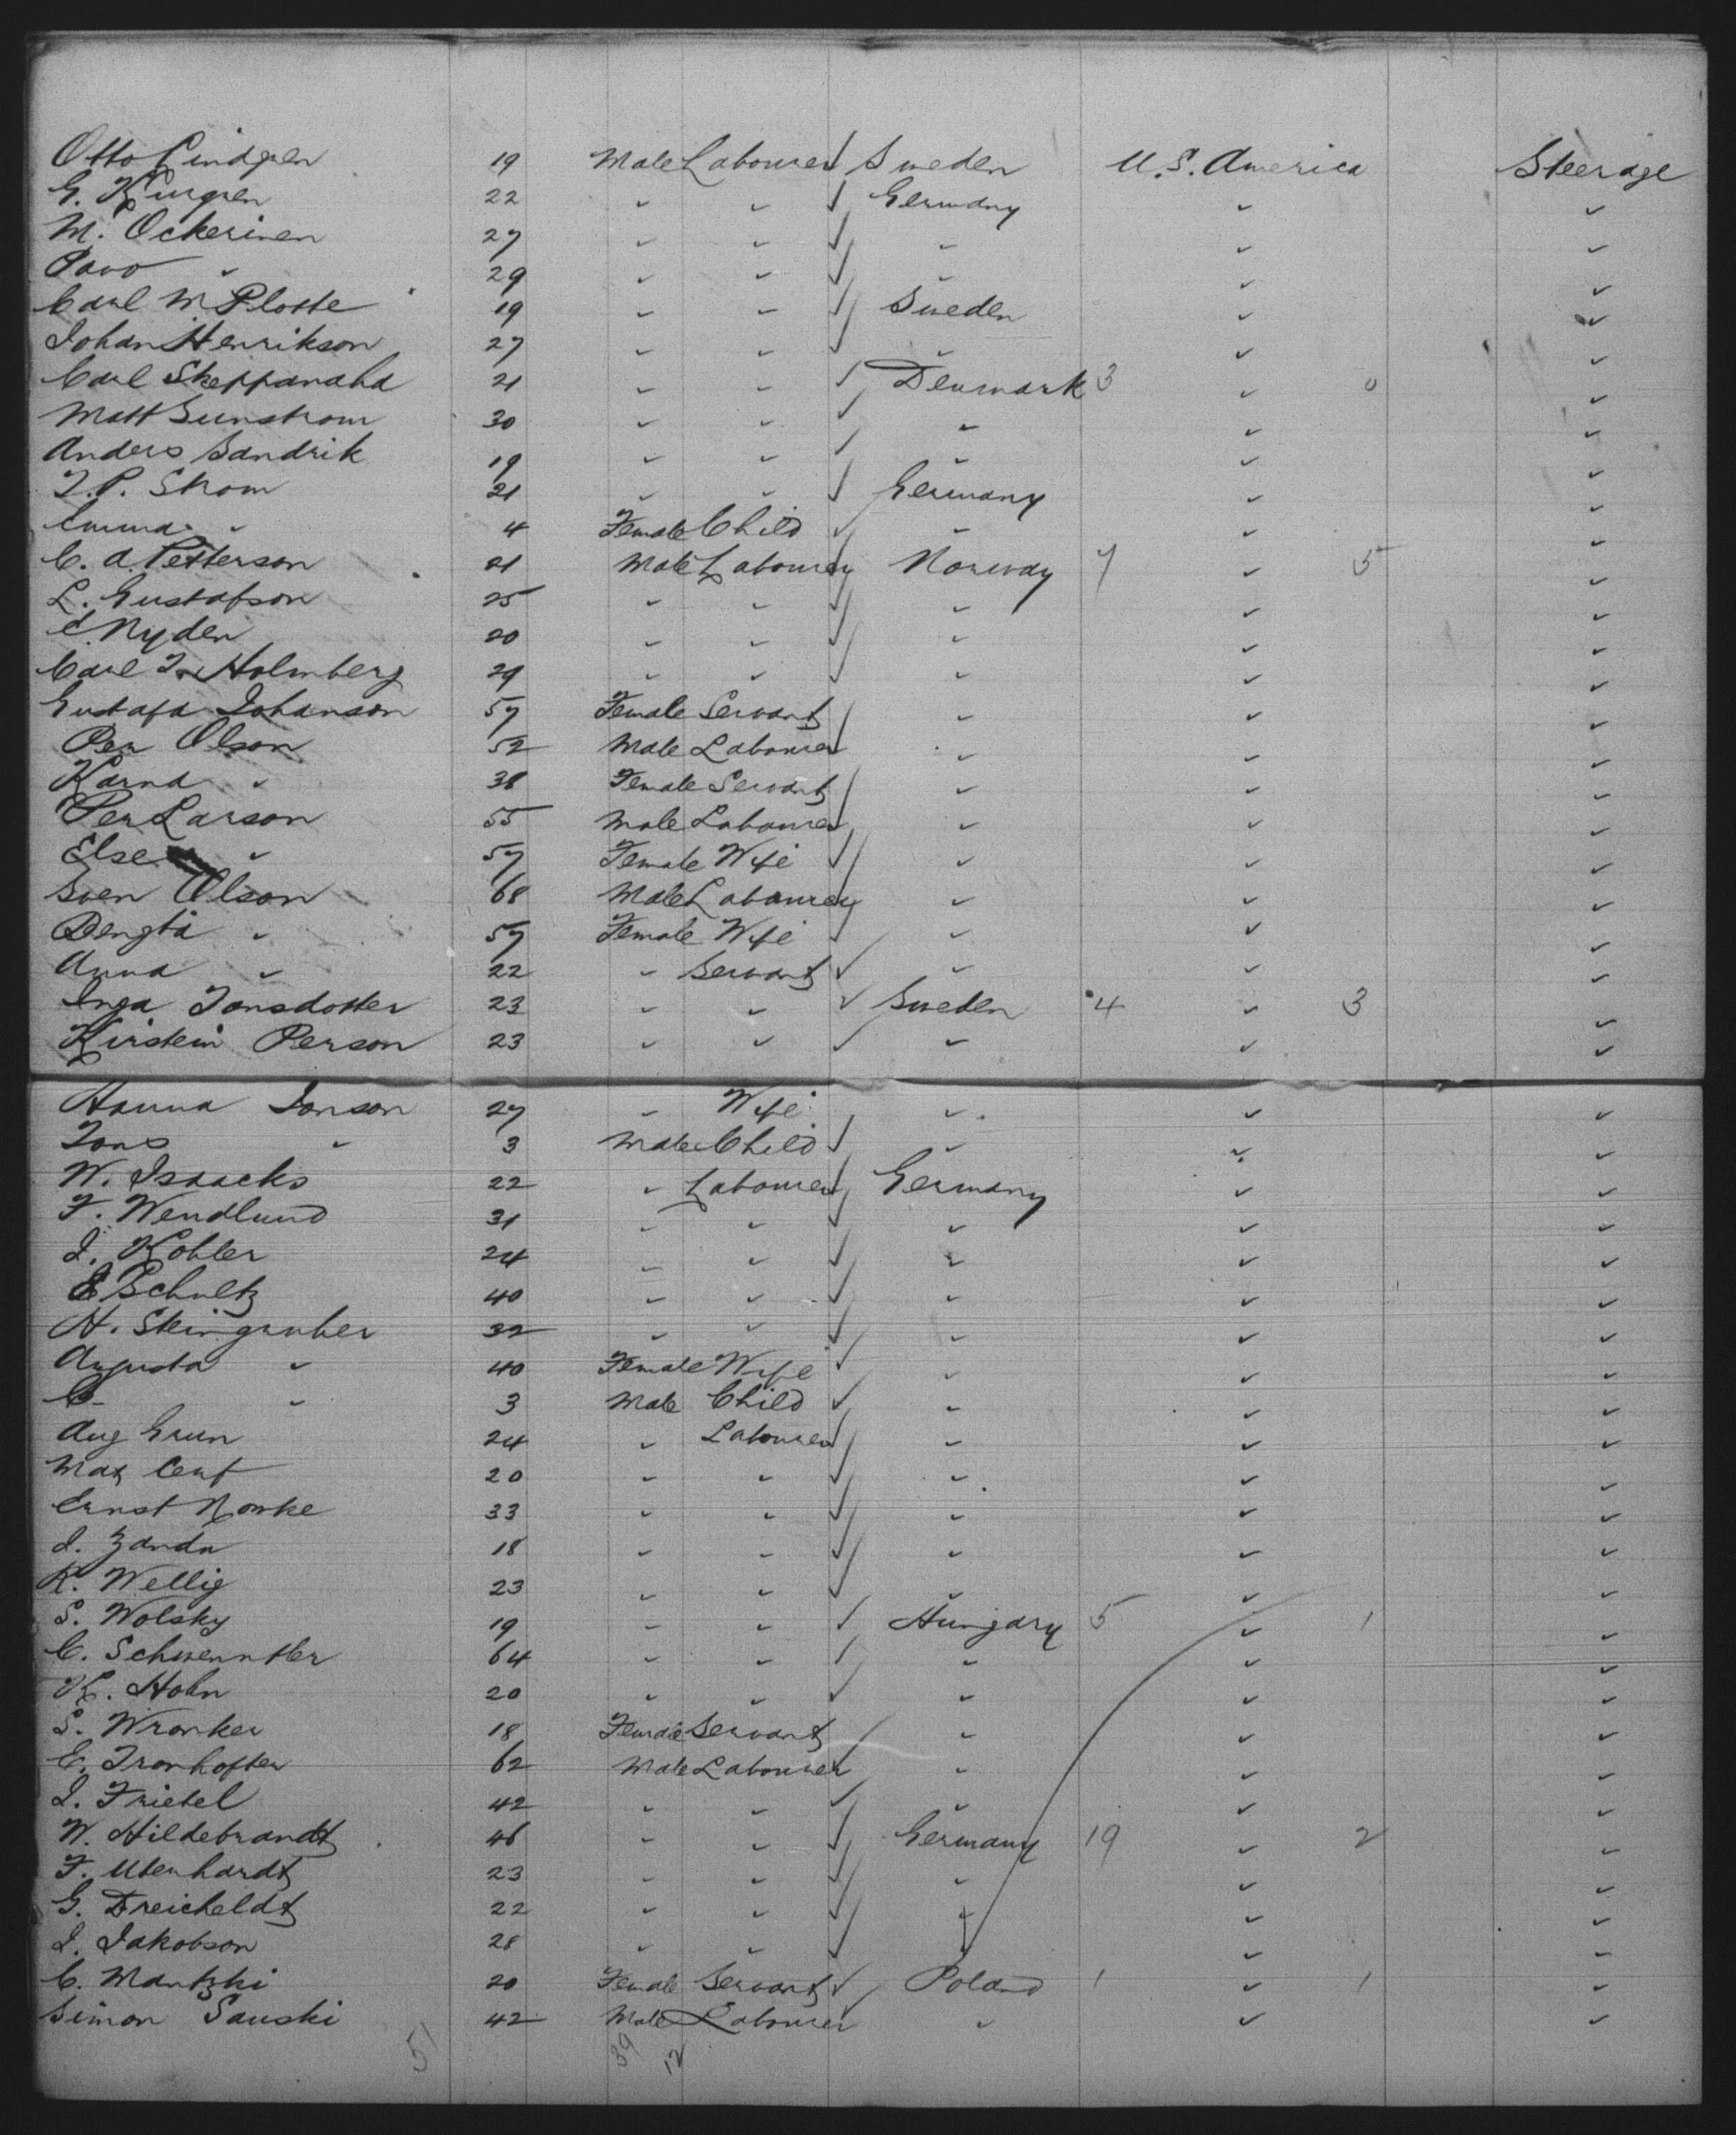 Otto Lindgren 19 Male Labourer Sweden U.S. America Steerage
G. Kurgren 22 " " Germany " "
M. Ockerinen 27 " " " " "
Pavo " 29 " " " " "
Carl M. Plotte 19 " " Sweden " "
Johan Henrikson 27 " " " " "
Carl Skeppanaha 21 " " Denmark 3 " 0 "
Matt Sunstrom 30 " " " " "
Anders Sandrik 19 " " " " "
J.P. Strom 21 " " Germany " "
Emma " 4 Female Child " " "
C. A. Petterson 21 Male Labourer Norway 7 " 5 "
L. Gustafson 25 " " " " "
E. Nyden 20 " " " " "
Carl J. Holmberg 29 " " " " "
Gustafa Johanson 57 Female Servant " " "
Per Olson 52 Male Labourer " " "
Karna " 38 Female Servant " " "
Per Larson 55 Male Labourer " " "
Else " 57 Female Wife " " "
Sven Olson 68 Male Labourer " " "
Bengta " 57 Female Wife " " "
Anna " 22 " Servant " " "
Inga Jonsdotter 23 " " Sweden 4 " 3 "
Kirstein Person 23 " " " " "
Hanna Jonson 27 " Wife " " "
Jons " 3 Male Child " " "
W. Isaacks 22 " Labourer Germany " "
F. Wendlund 31 " " " " "
J. Kohler 24 " " " " "
E Schultz 40 " " " " "
H. Steingruber 32 " " " " "
Augusta " 40 Female Wife " " "
C. " 3 Male Child " " "
Aug Grun 24 " Labourer " " "
Max 20 " " " " "
Ernst Nowke 33 " " " " "
J. Zanda 18 " " " " "
K. Wellig 23 " " " " "
S. Wolsky 19 " " Hungary 5 " 1 "
C. 64 " " " " "
K. Hohn 20 " " " " "
S. Wronker 18 Female Servant " " "
E. Tronhofter 62 Male Labourer " " "
J. Friebel 42 " " " " "
W. Hildebrandt 46 " " Germany 19 " 2 "
F. Utenhardt 23 " " " " "
G. Treicheldt 22 " " " " "
J. Jakobson 28 " " " " "
C. Mantzki 20 Female Servant Poland 1 " 1 "
Simon Sauski 42 Male Labourer " " "
51 39 12